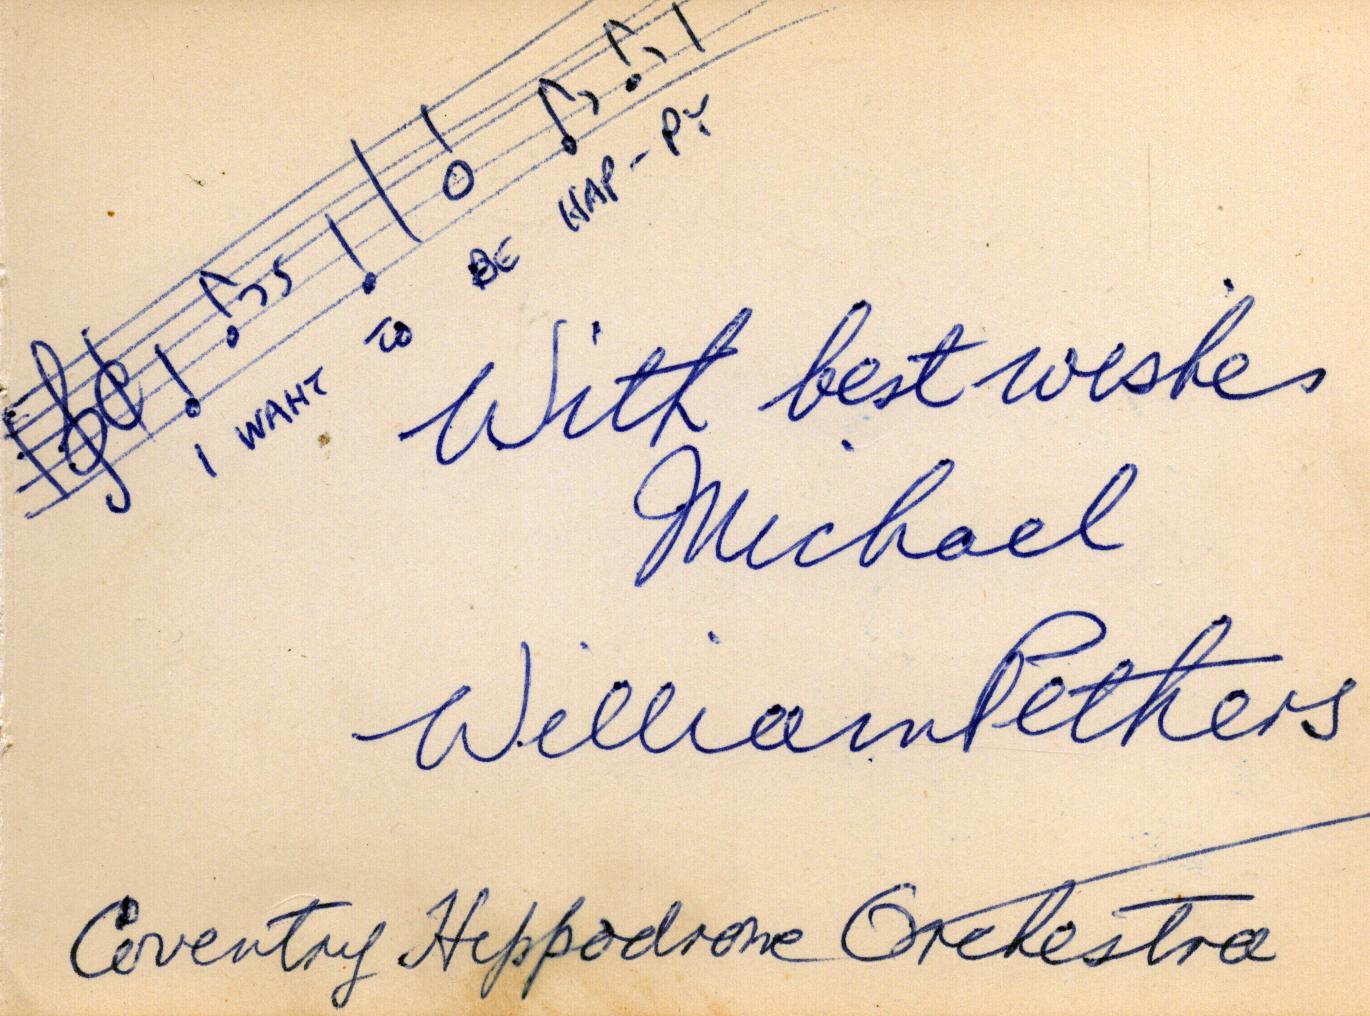 I WANT TO BE HAP-PY
With best wishes
Michael
William Pethers
Coventry Hippodrome Orchestra